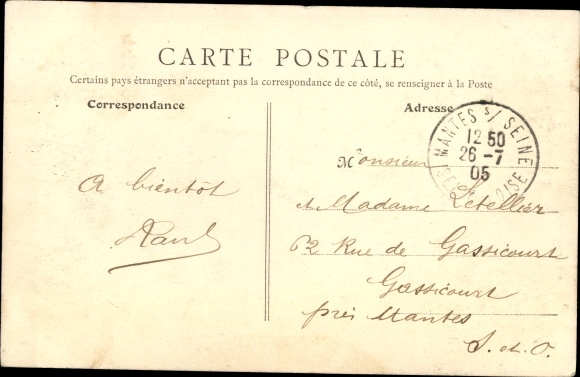 CARTE POSTALE
Certains pays étrangers n'acceptant pas la correspondance de ce côté, se renseigner à la Poste
Correspondance
Adresse
MANTES S/ SEINE
12 50
26 -7
05
SE OISE
A bientôt
Paul
Monsieur
et Madame Letellier
62 Rue de Gassicourt
Gassicourt
près Mantes
S. et O.